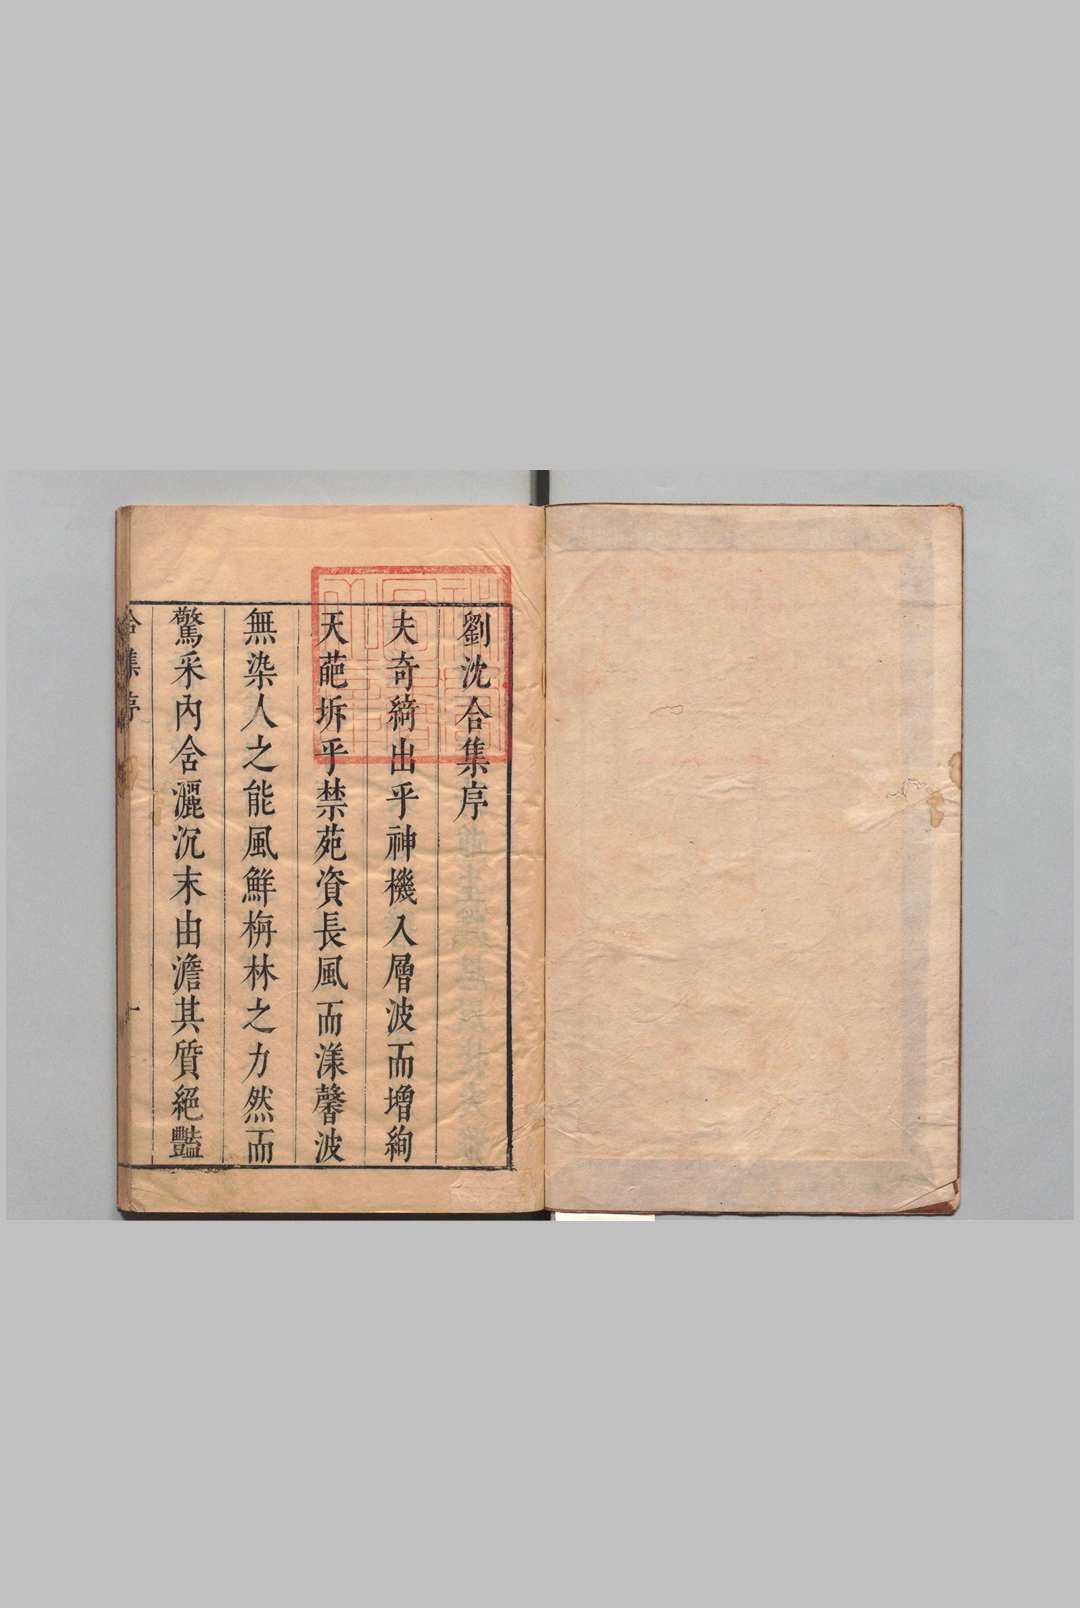 劉沈合集序
夫奇綺出乎神機入層波而增絢
天葩坼乎禁苑資長風而漾馨波
無染人之能風鮮栴林之力然而
驚采內含灑沉末由澹其質絕豔
合集序